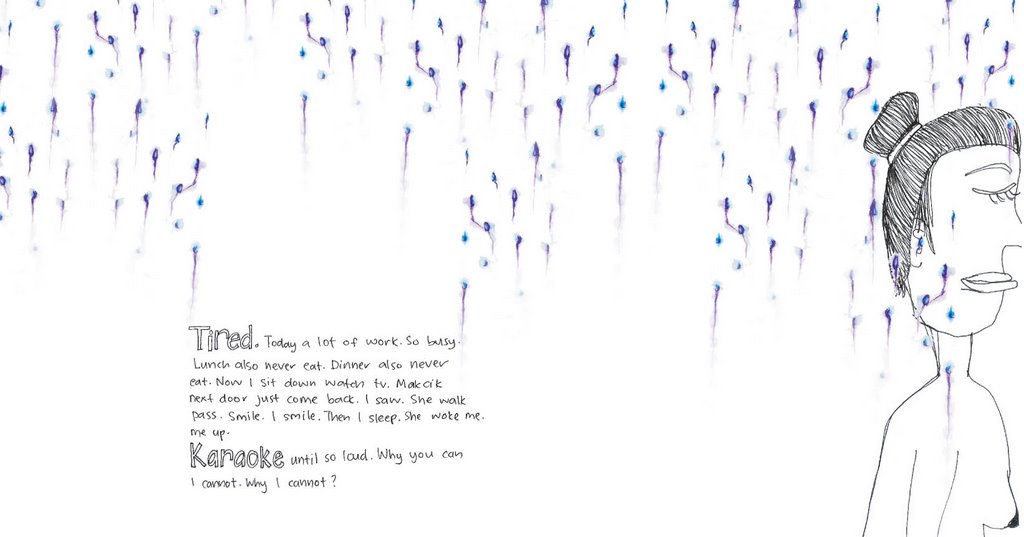 Tired. Today a lot of work. So busy.
Lunch also never eat. Dinner also never
eat. Now I sit down watch tv. Makcik
next door just come back. I saw. She walk
pass. Smile. I smile. Then I sleep. She woke me.
me up.
Karaoke until so loud. Why you can
I cannot. Why I cannot?